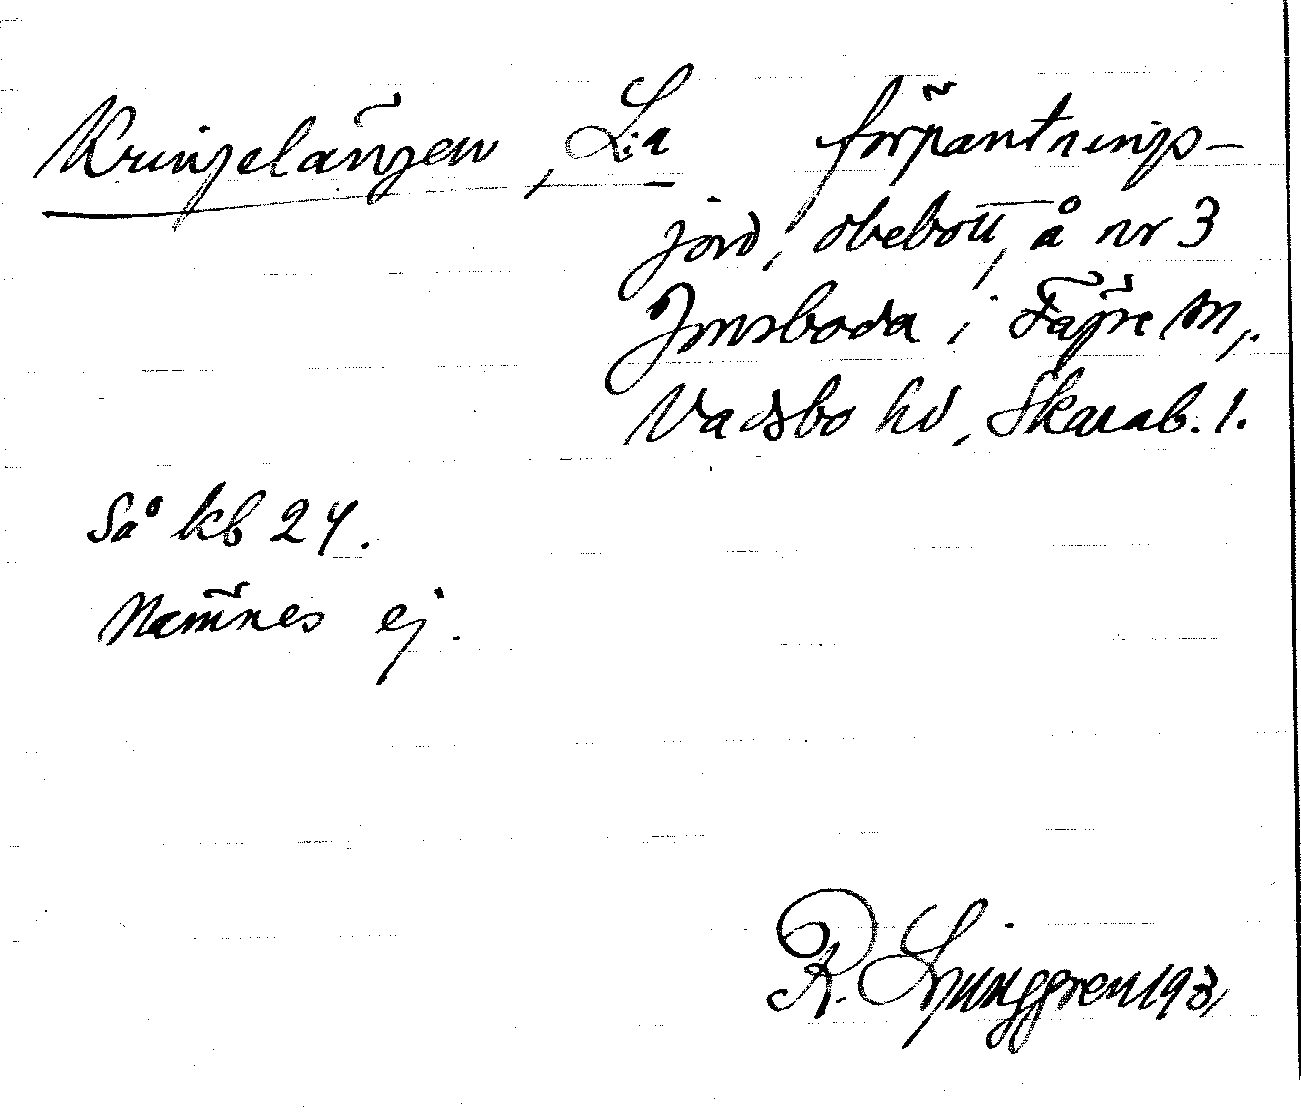 Kringelängen, L:a förpantnings-
jord, obebott, å nr 3
Jonsboda i Fägre sn,
Vadsbo hd, Skarab. l.
Så kb 24.
Nämnes ej.
R. Ljunggren 193